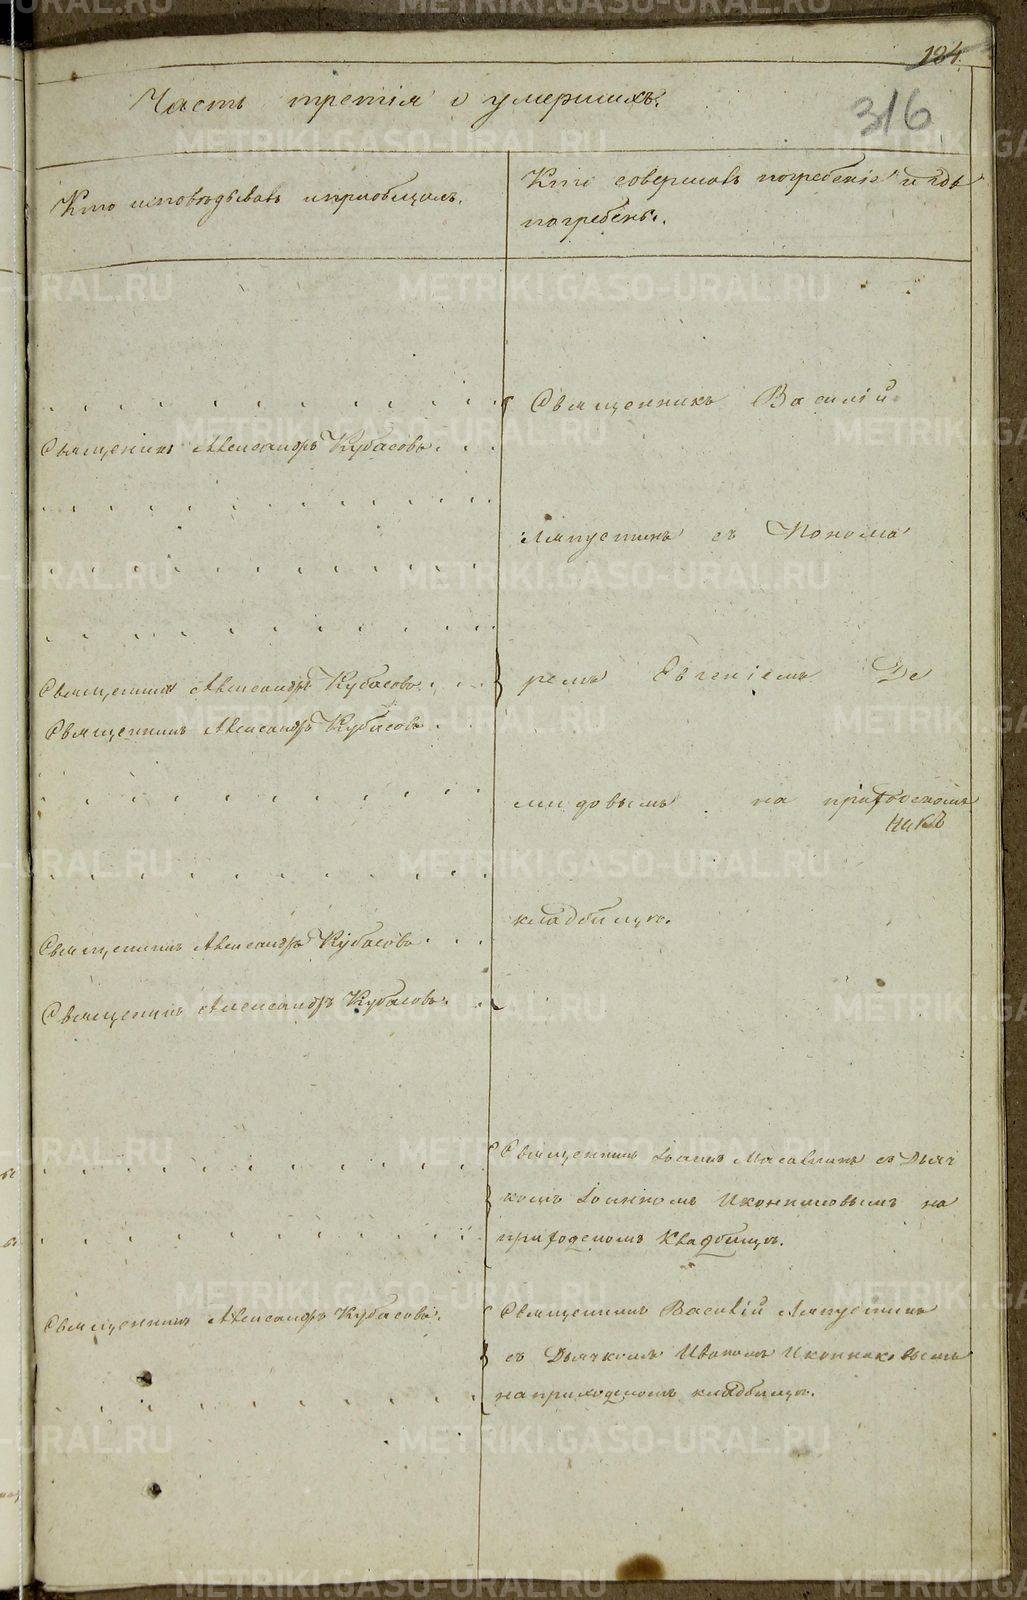 184
316
Часть третія о умершихъ.
Кто исповѣдывалъ и пріобщалъ.
Кто совершалъ погребеніе и гдѣ
погребены.
Священникъ Василій
Священникъ Александръ Кубасовъ.
Ляпустинъ съ Понома
Священникъ Александръ Кубасовъ.
ремъ Евгеніемъ Де
Священникъ Александръ Кубасовъ.
мидовымъ на приходскомъ
кладбищѣ.
Священникъ Александръ Кубасовъ.
Священникъ Александръ Кубасовъ.
Священникъ Іоаннъ съ Дьяч
комъ Іоанномъ Иконниковымъ на
приходскомъ кладбищѣ.
Священникъ Александръ Кубасовъ.
Священникъ Василій Ляпустинъ
съ Дьячкомъ Иваномъ Иконниковымъ
на приходскомъ кладбищѣ.
METRIKI.GASO-URAL.RU